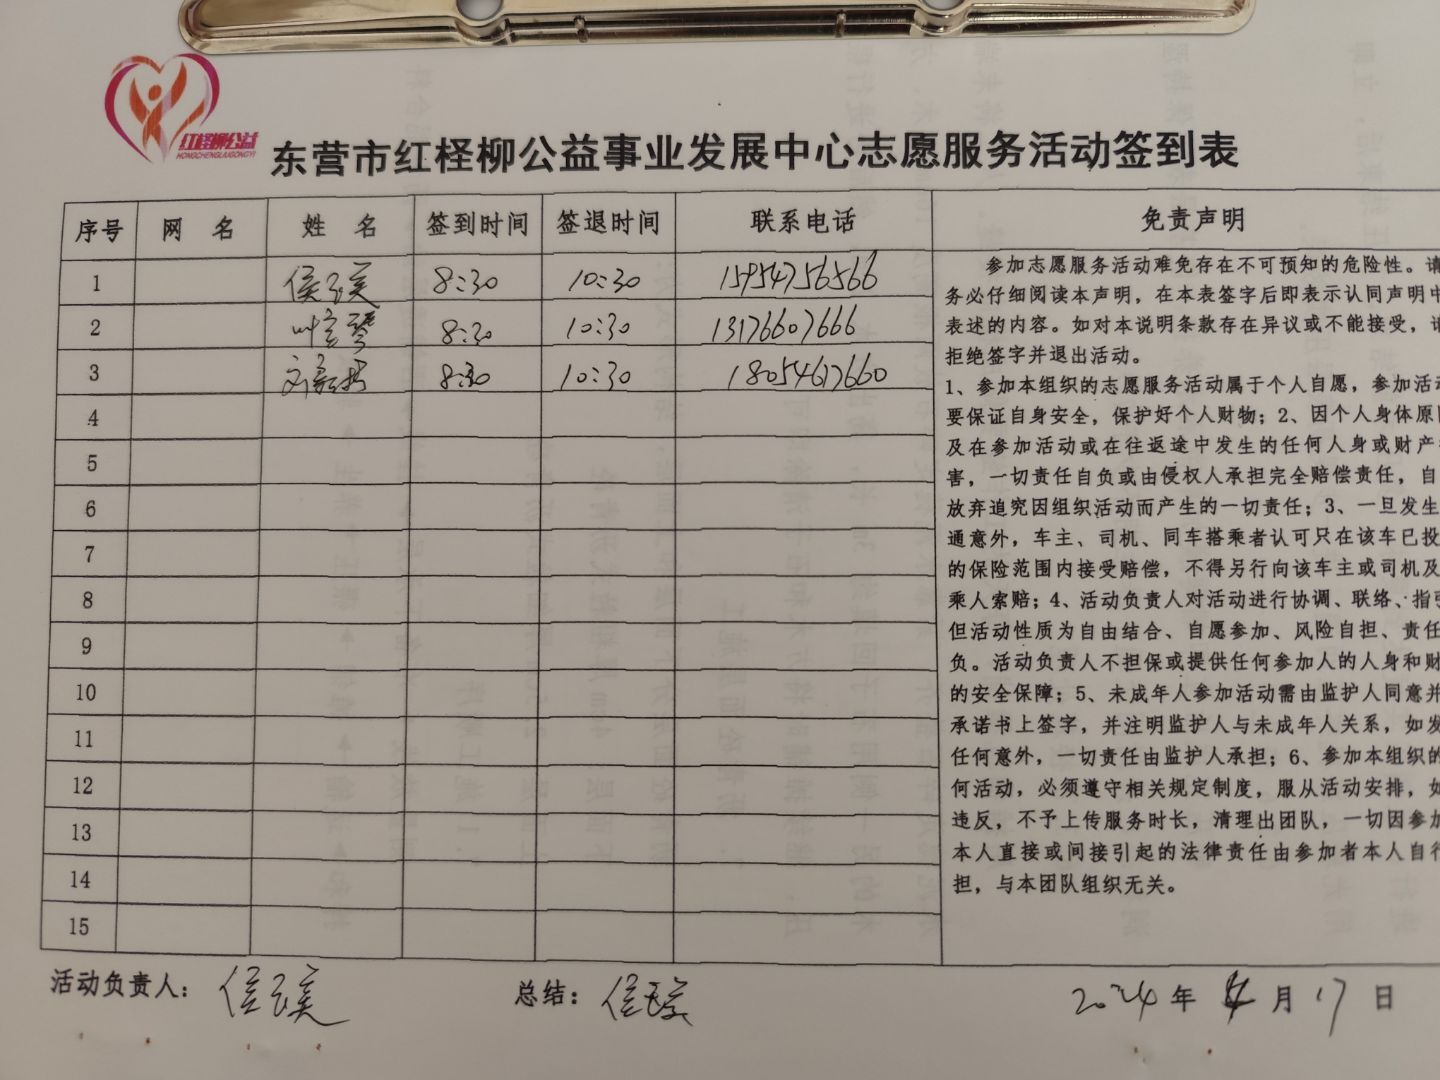 红柽柳公益
HONGCHENGLIUGONGYI
东营市红柽柳公益事业发展中心志愿服务活动签到表
序号 网 名 姓 名 签到时间 签退时间 联系电话 免责声明
1 8:30 10:30 15954756566
2 8:30 10:30 13176607666
3 8:30 10:30 18054617660
4
5
6
7
8
9
10
11
12
13
14
15
参加志愿服务活动难免存在不可预知的危险性。请
务必仔细阅读本声明，在本表签字后即表示认同声明中
表述的内容。如对本说明条款存在异议或不能接受，请
拒绝签字并退出活动。
1、参加本组织的志愿服务活动属于个人自愿，参加活动
要保证自身安全，保护好个人财物；2、因个人身体原因
及在参加活动或在往返途中发生的任何人身或财产
害，一切责任自负或由侵权人承担完全赔偿责任，自
放弃追究因组织活动而产生的一切责任；3、一旦发生
通意外，车主、司机、同车搭乘者认可只在该车已投
的保险范围内接受赔偿，不得另行向该车主或司机及
乘人索赔；4、活动负责人对活动进行协调、联络、指引
但活动性质为自由结合、自愿参加、风险自担、责任
负。活动负责人不担保或提供任何参加人的人身和财
的安全保障；5、未成年人参加活动需由监护人同意并
承诺书上签字，并注明监护人与未成年人关系，如发
任何意外，一切责任由监护人承担；6、参加本组织的
何活动，必须遵守相关规定制度，服从活动安排，如
违反，不予上传服务时长，清理出团队，一切因参加
本人直接或间接引起的法律责任由参加者本人自行
担，与本团队组织无关。
活动负责人： 总结： 2024年 4月 17日